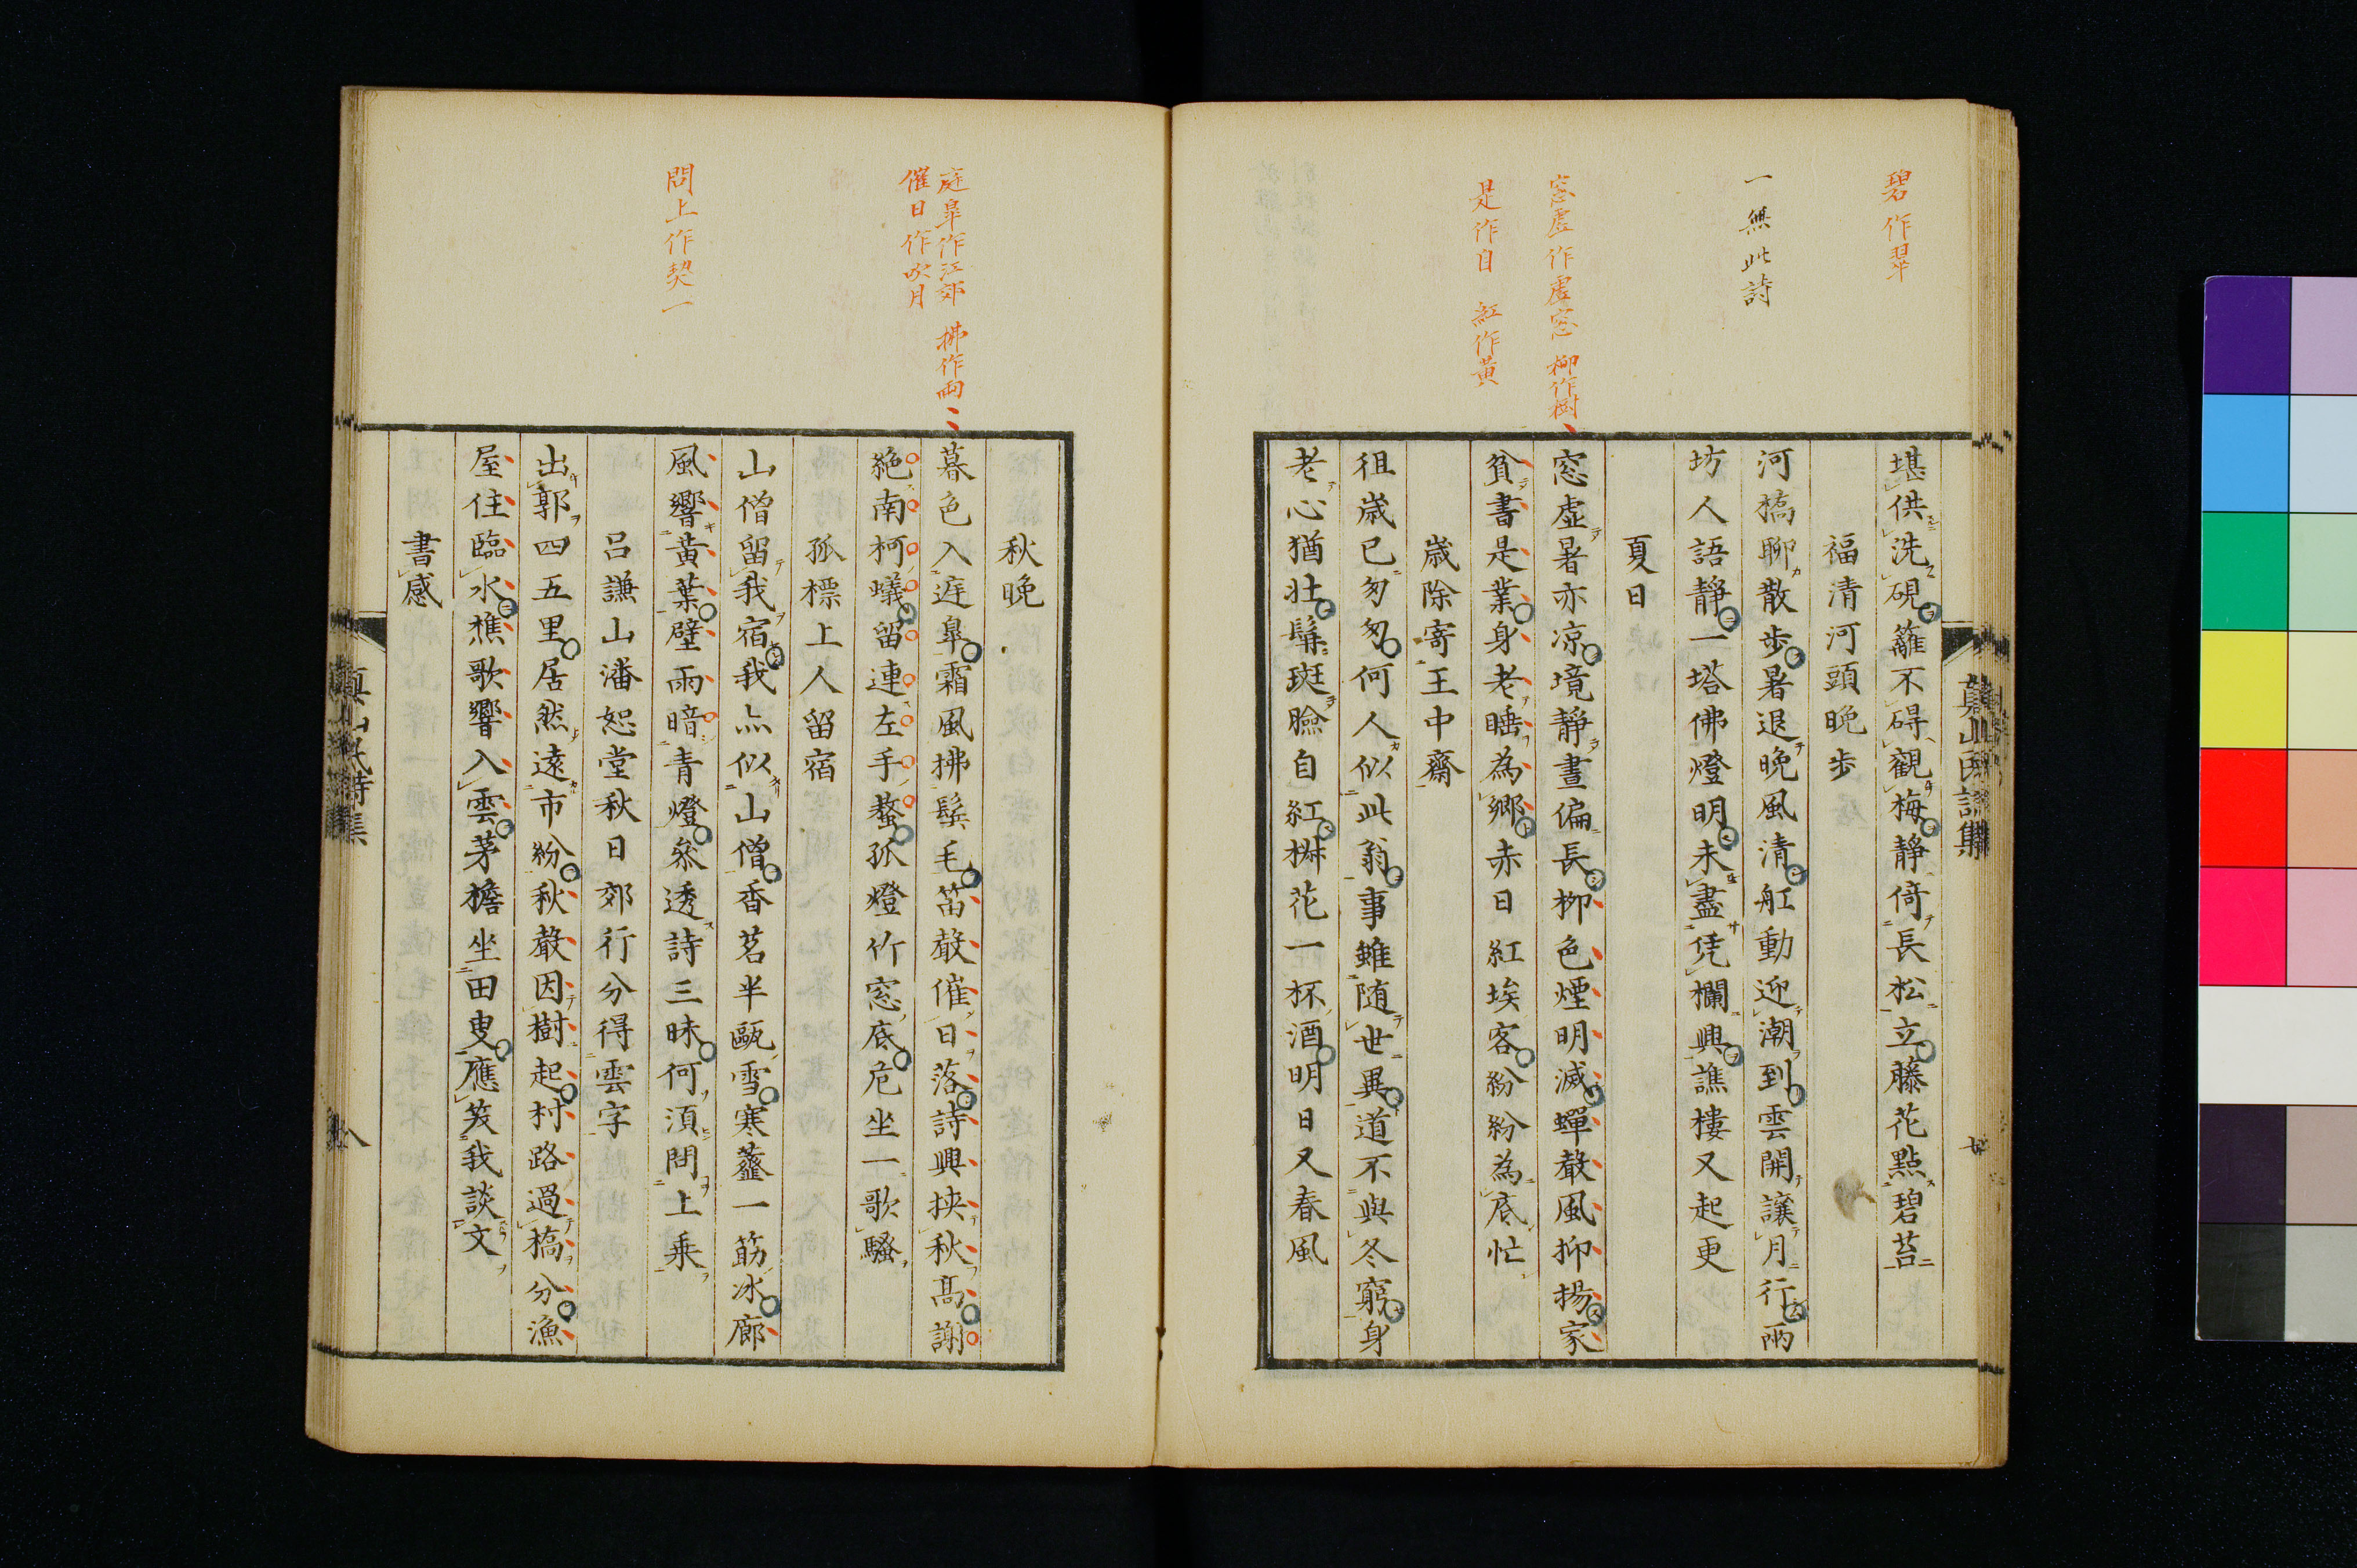 碧作翠
一無此詩
窓虛作虛窓　柳作樹
是作自　紅作黃
堪供洗硯籬不碍觀梅靜倚長松立藤花點碧苔
福清河頭晚步
河橋聊散步暑退晚風清舡動迎潮到雲開讓月行兩
坊人語靜一塔佛燈明未盡凭欄興譙樓又起更
夏日
窓虛暑亦凉境靜晝偏長柳色煙明滅蟬聲風抑揚家
貧書是業身老睡為鄉赤日紅埃客紛紛為底忙
歲除寄王中齋
徂歲已匆匆何人似此翁事雖随世異道不與冬窮身
老心猶壯鬂斑臉自紅楙花一杯酒明日又春風
真山民詩集
庭皐作江郊　拂作雨
催日作吹月
問上作契一
秋晚
暮色入庭皐霜風拂鬂毛笛聲催日落詩興挾秋高謝
絕南柯蟻留連左手螯孤燈竹窓底危坐一歌騷
孤標上人留宿
山僧留我宿我亦似山僧香茗半甌雪寒虀一筯冰廊
風響黃葉壁雨暗青燈叅透詩三昧何湏問上乘
呂謙山潘恕堂秋日郊行分得雲字
出郭四五里居然遠市紛秋聲因樹起村路過橋分漁
屋住臨水樵歌響入雲茅檐坐田叟應笑我談文
書感
真山民詩集
八